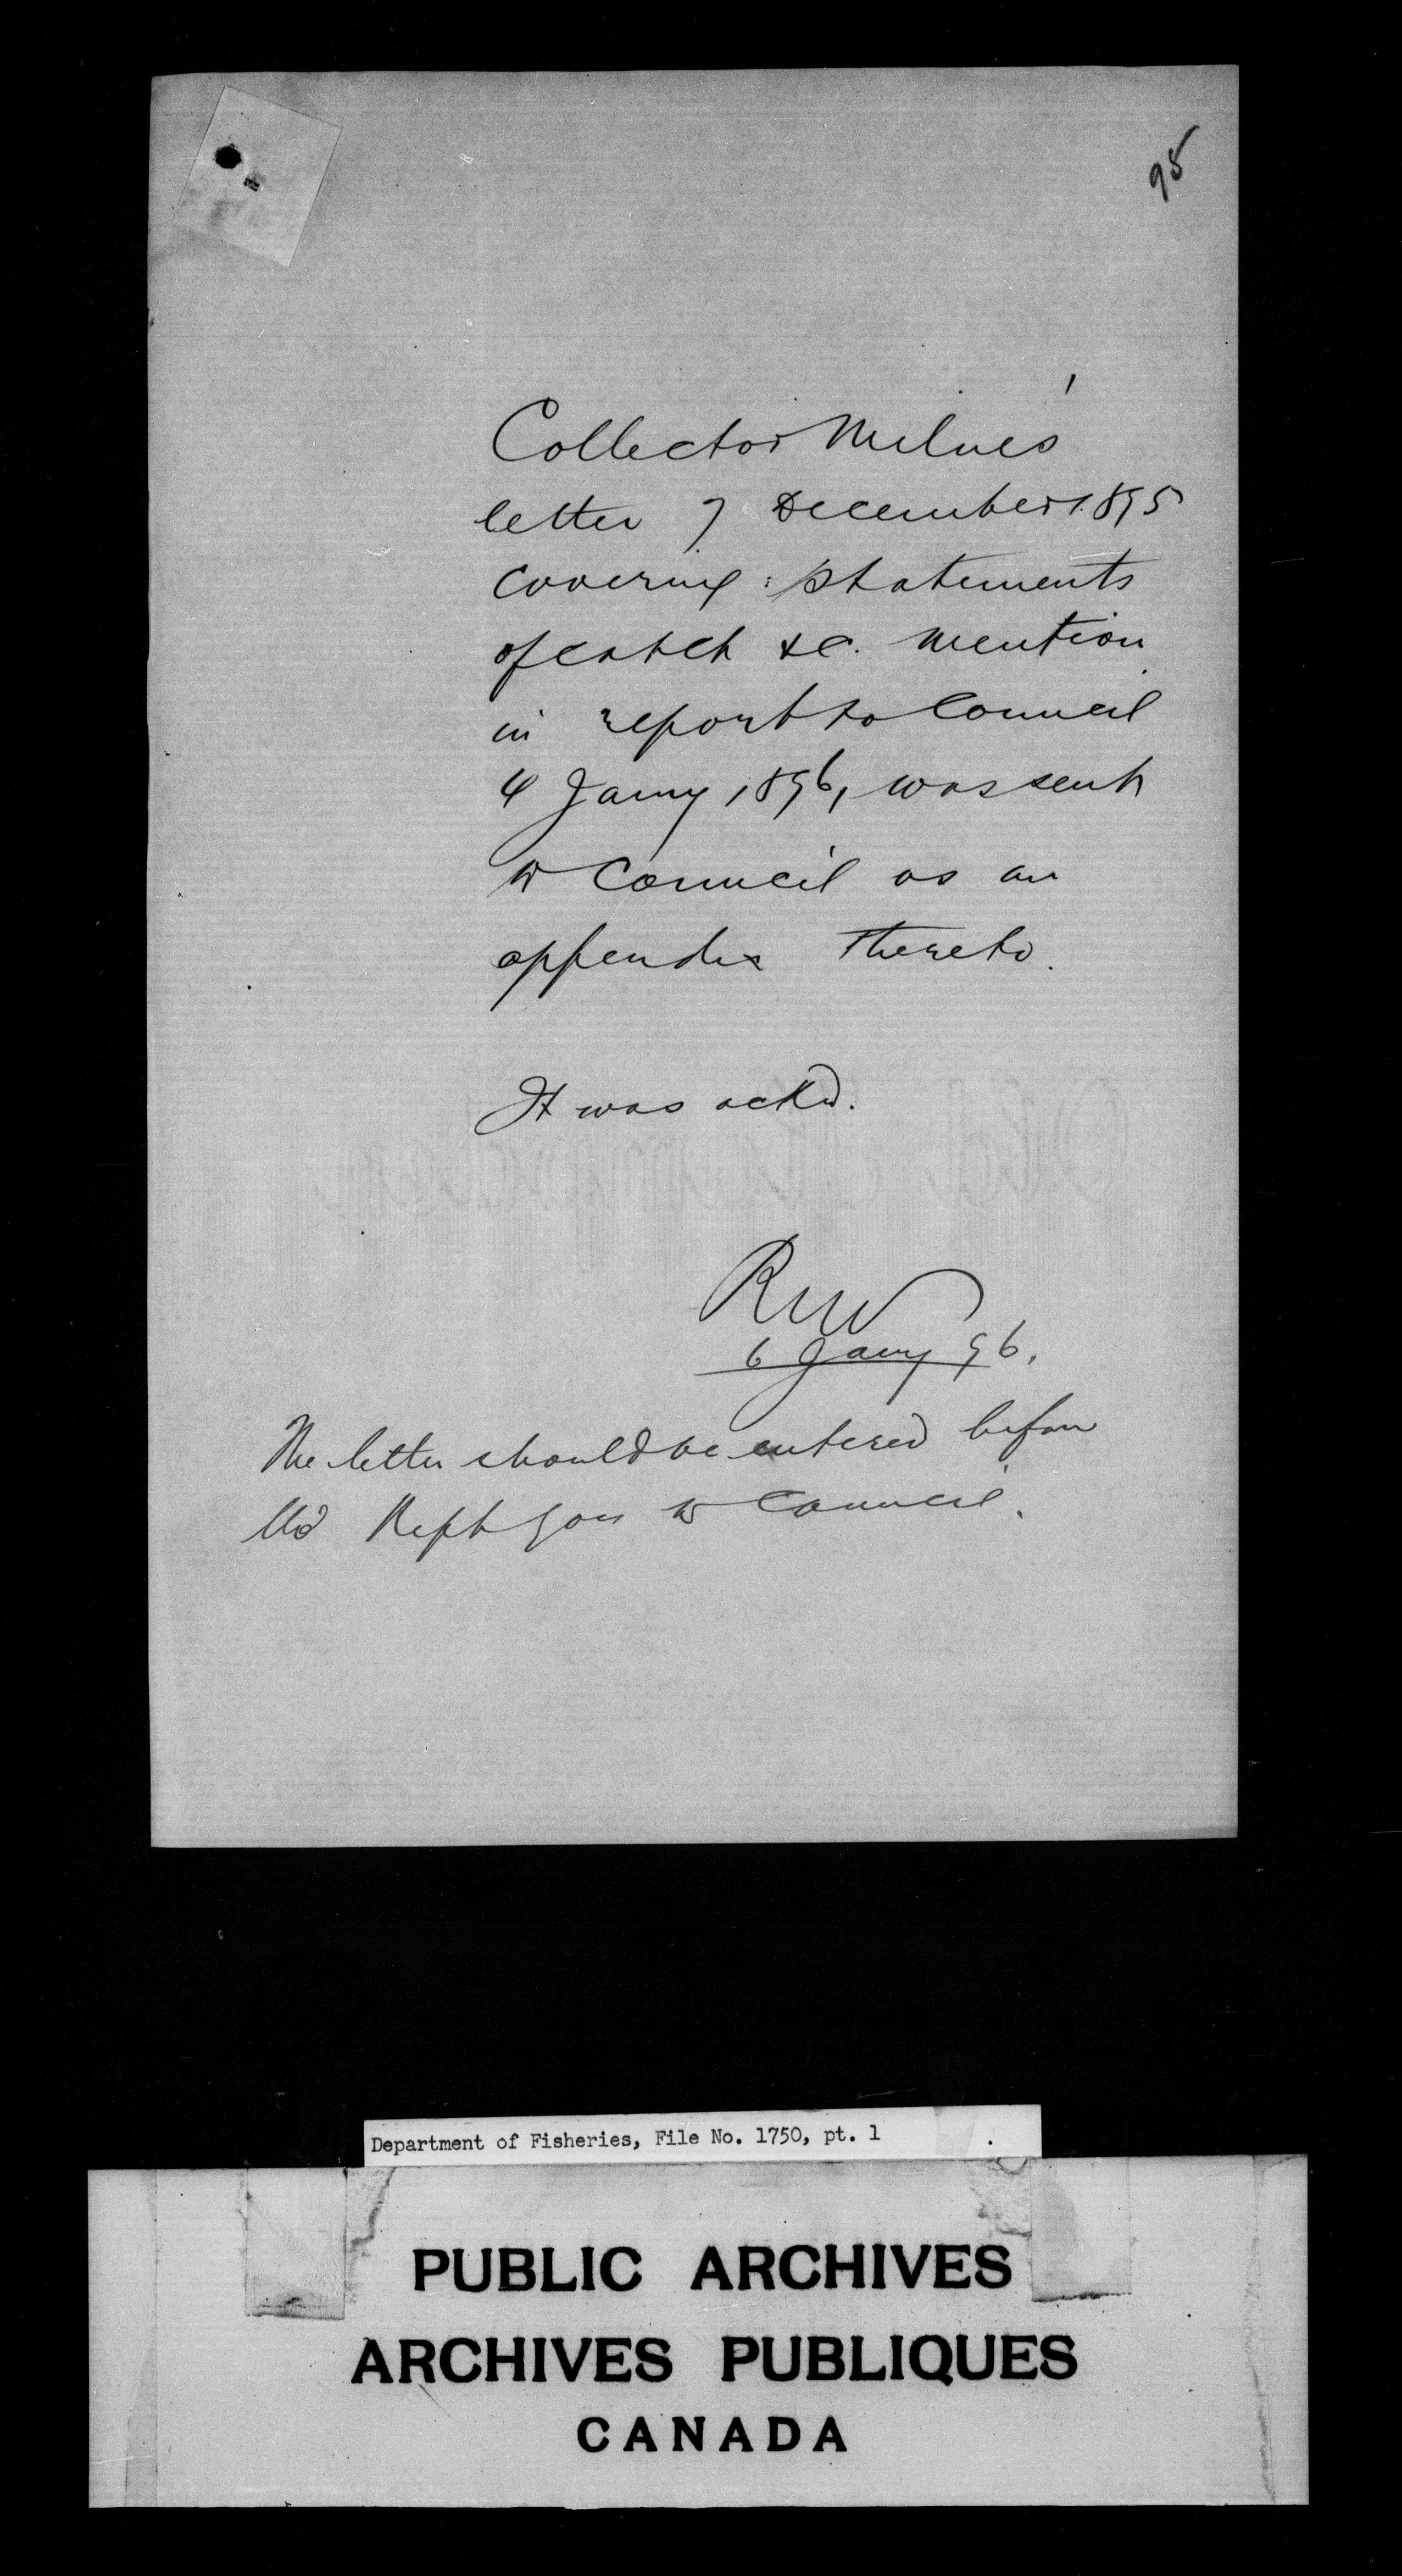 95
Collector Milne's
letter 7 December 1895
covering statements
of catch &c. mention
in report to Council
4 Jany 1896, was sent
to Council as an
appendix thereto.
It was ackd.
RNV
6 Jany 96.
The letter should be entered before
Rept goes to Council.
Department of Fisheries, File No. 1750, pt. 1
PUBLIC ARCHIVES
ARCHIVES PUBLIQUES
CANADA